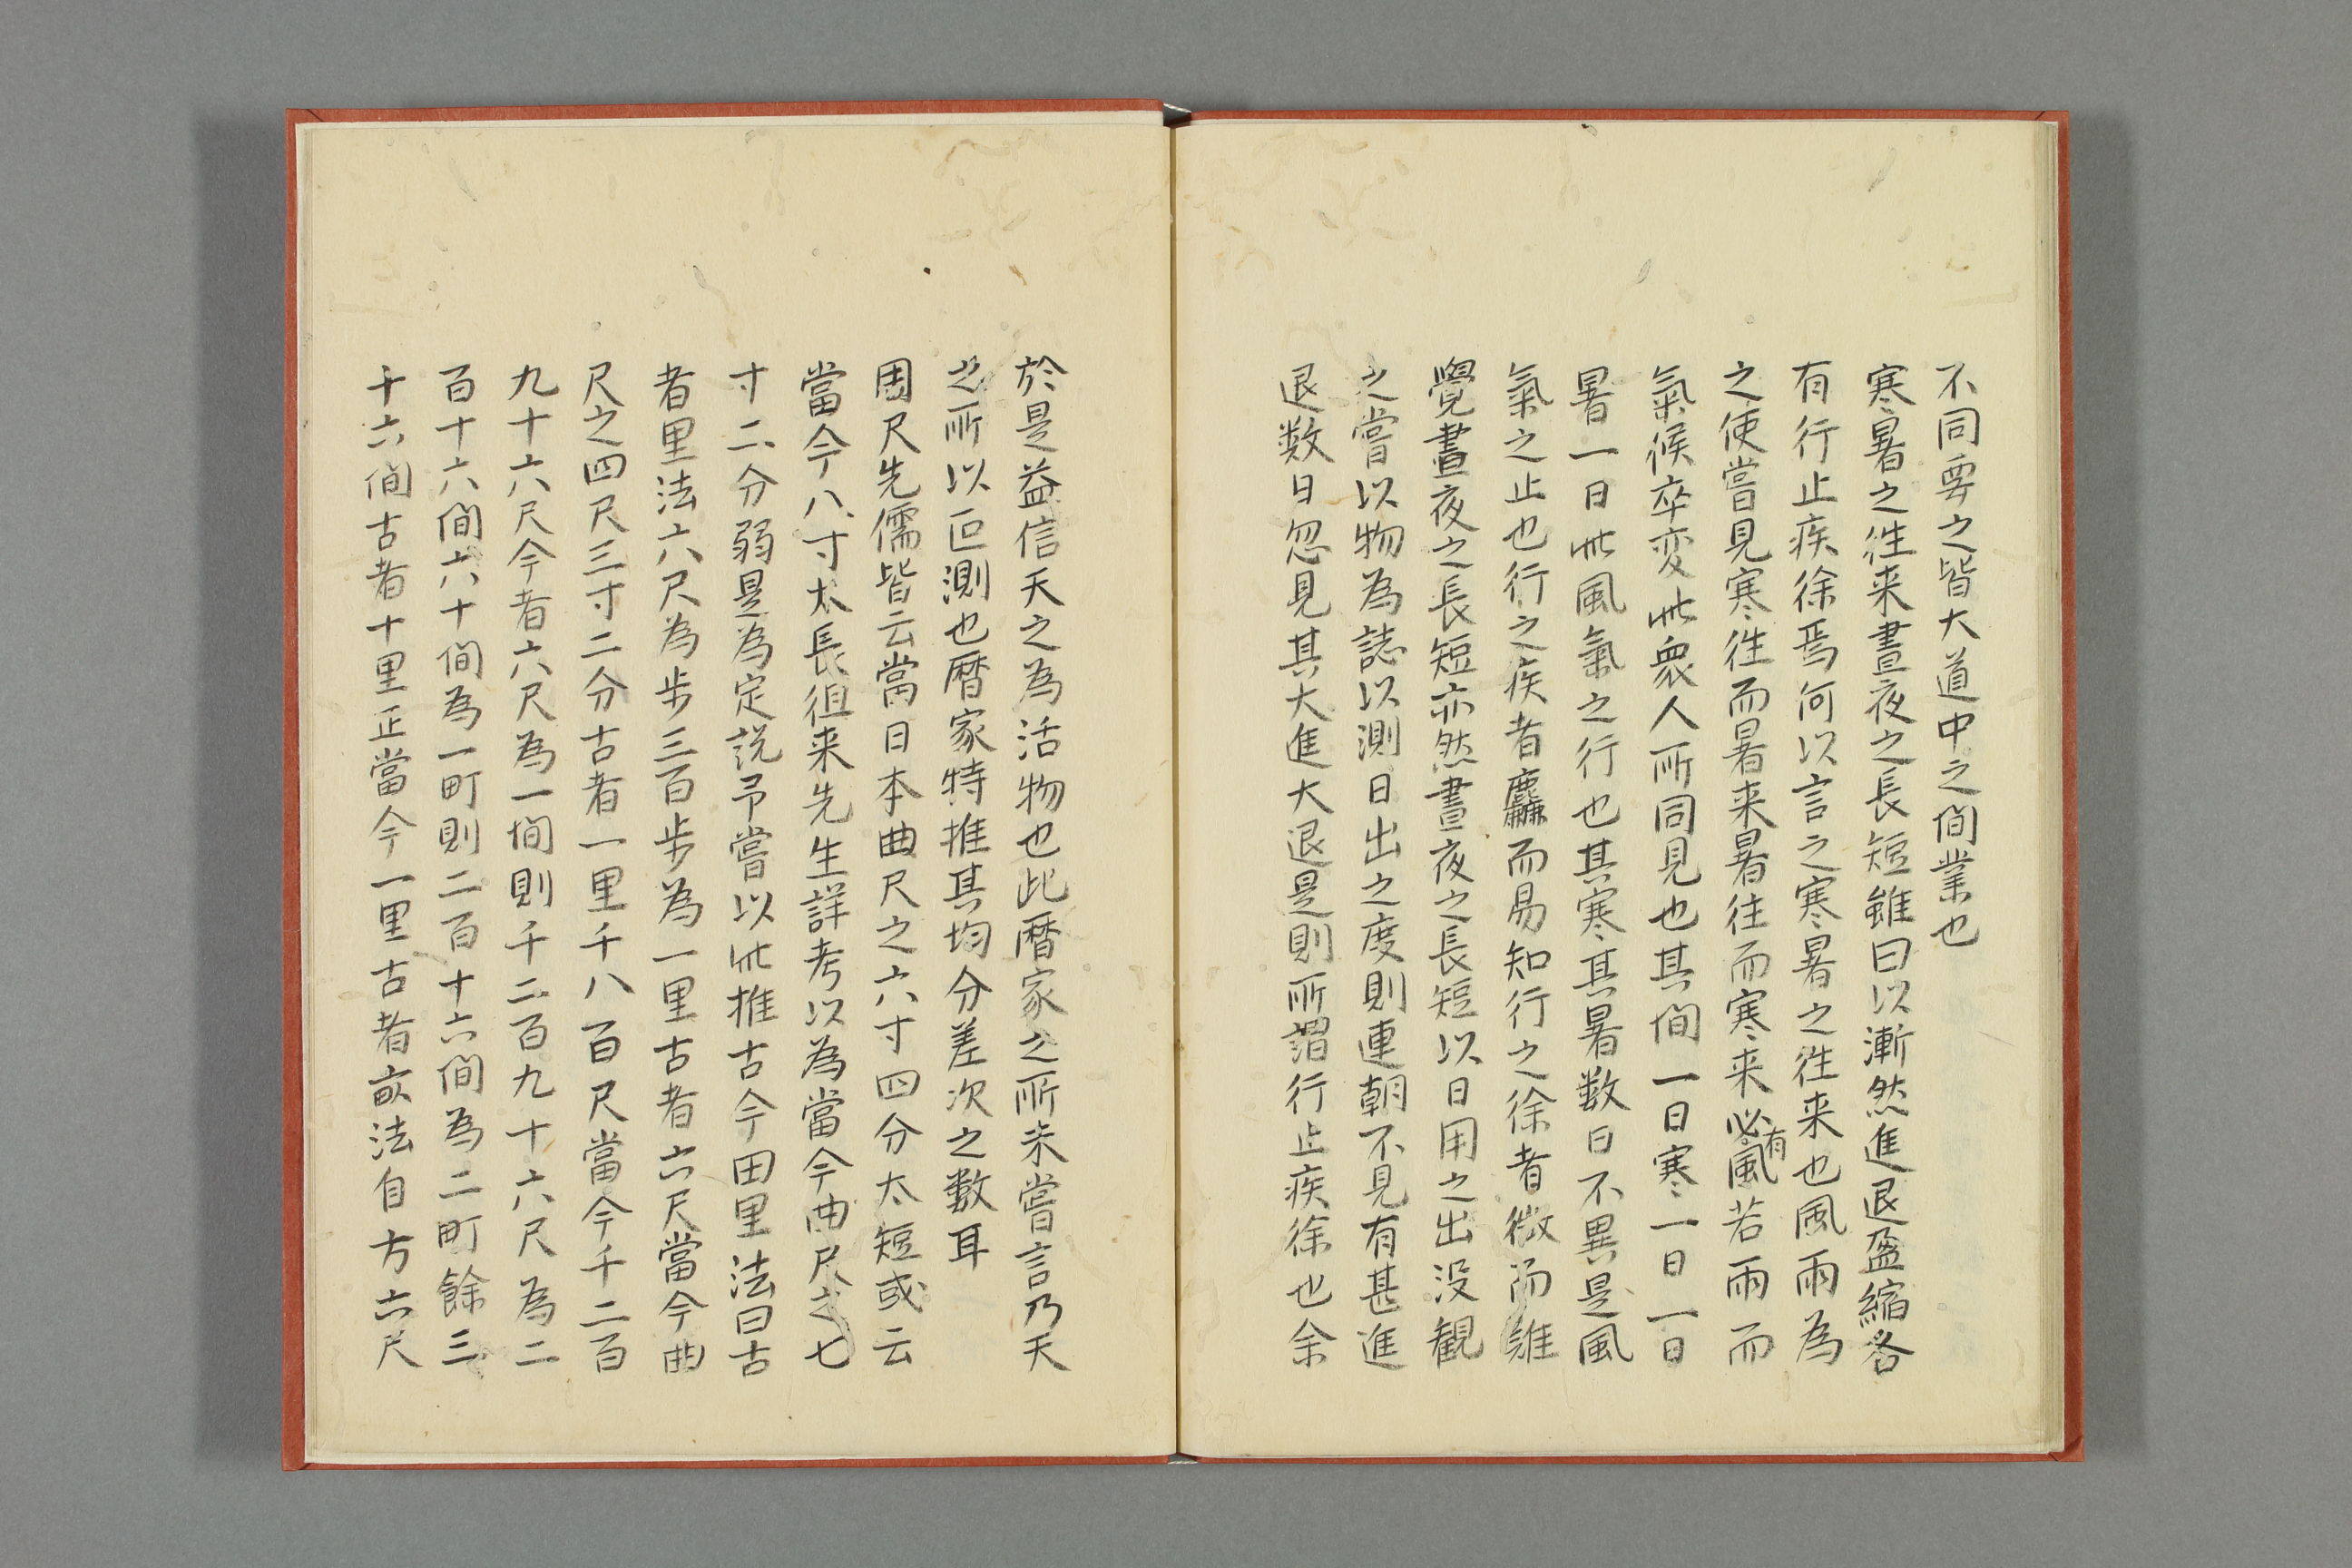 不同要之皆大道中之間業也
寒暑之徃来晝夜之長短雖曰以漸然進退盈縮各
有行止疾徐焉何以言之寒暑之徃来也風雨為
之使嘗見寒徃而暑来暑往而寒来必有風若雨而
氣候卒変此衆人所同見也其間一日寒一日一日
暑一日此風氣之行也其寒其暑数日不異是風
氣之止也行之疾者麤而易知行之徐者微而難
覺晝夜之長短亦然晝夜之長短以日用之出没観
之嘗以物為誌以測日出之度則連朝不見有甚進
退数日忽見其大進大退是則所謂行止疾徐也余
於是益信天之為活物也此暦家之所未嘗言乃天
之所以叵測也暦家特推其均分差次之數耳
周尺先儒皆云當日本曲尺之六寸四分太短或云
當今八寸太長徂来先生詳考以為當今曲尺之七
寸二分弱是為定説予嘗以此推古今田里法曰古
者里法六尺為步三百步為一里古者六尺當今曲
尺之四尺三寸二分古者一里千八百尺當今千二百
九十六尺今者六尺為一間則千二百九十六尺為二
百十六間六十間為一町則二百十六間為二町餘三
十六間古者十里正當今一里古者畝法自方六尺